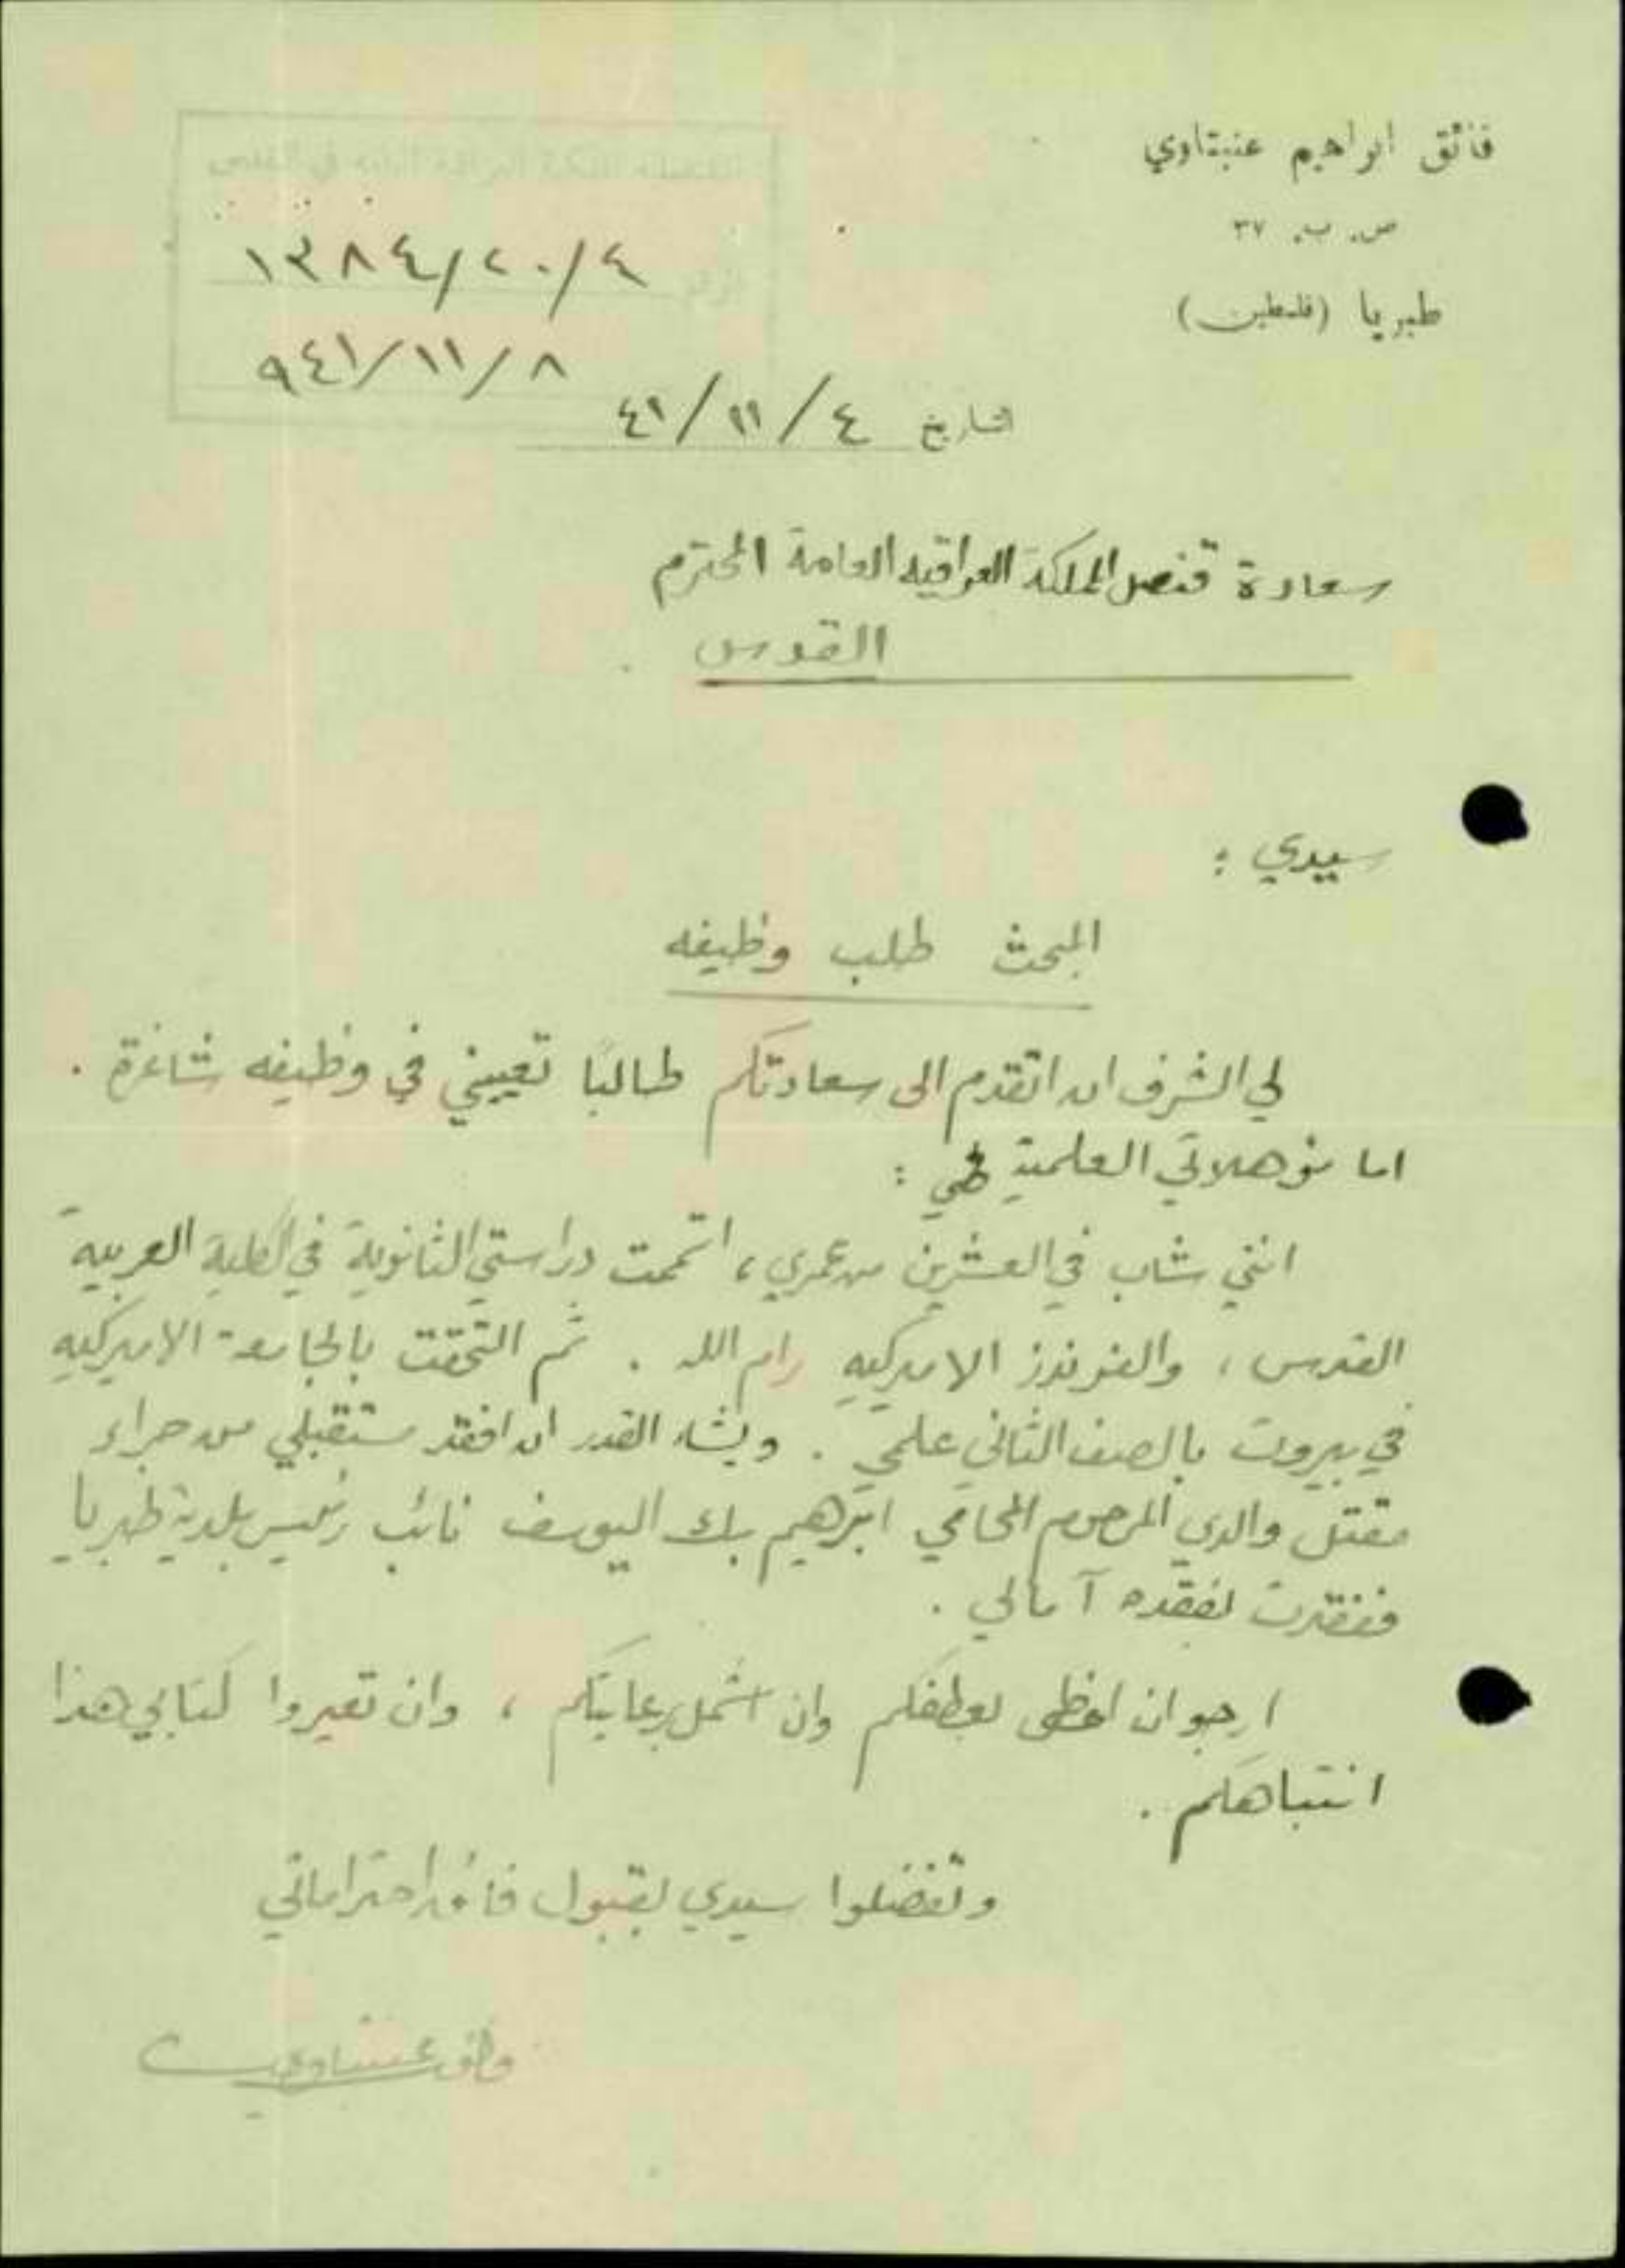 فائق ابراهيم عنبتاوي
ص. ب. ٣٧
طبريا (فلسطين)
القنصلية الملكية العراقية العامة في القدس
الرقم ١٣٨٤/٢٠/٤
٩٤١/١١/٨
التاريخ ٤١/١١/٤
سعادة قنصل المملكة العراقيه العامة المحترم
القدس
سيدي :
المبحث طلب وظيفه
لي الشرف ان اتقدم الى سعادتكم طالبًا تعييني في وظيفه شاغرة .
اما مؤهلاتي العلمية فهي :
انني شاب في العشرين من عمري، اتممت دراستي الثانوية في الكلية العربية
القدس ، والفرندز الاميركيه رام الله . ثم التحقت بالجامعة الاميركيه
في بيروت بالصف الثاني علمي . ويشاء القدر ان افقد مستقبلي من جراء
مقتل والدي المرحوم المحامي ابرهيم بك اليوسف نائب رئيس بلدية طبريا
ففقدت بفقده آمالي .
ارجو ان احظى بعطفكم وان اشمل برعايتكم ، وان تعيروا كتابي هذا
انتباهكم .
وتفضلوا سيدي بقبول فائق احتراماتي
فائق عنبتاوي